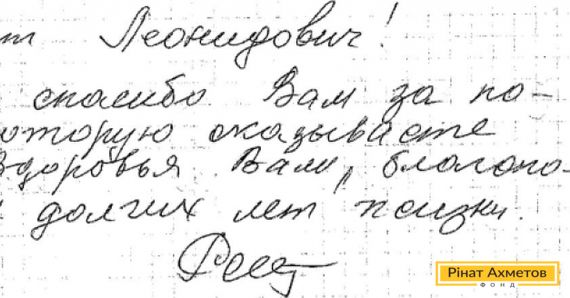 т Леонидович!
спасибо Вам за по-
оторую оказываете
Здоровья Вам, благопо-
долгих лет жизни.
Рінат Ахметов
ФОНД